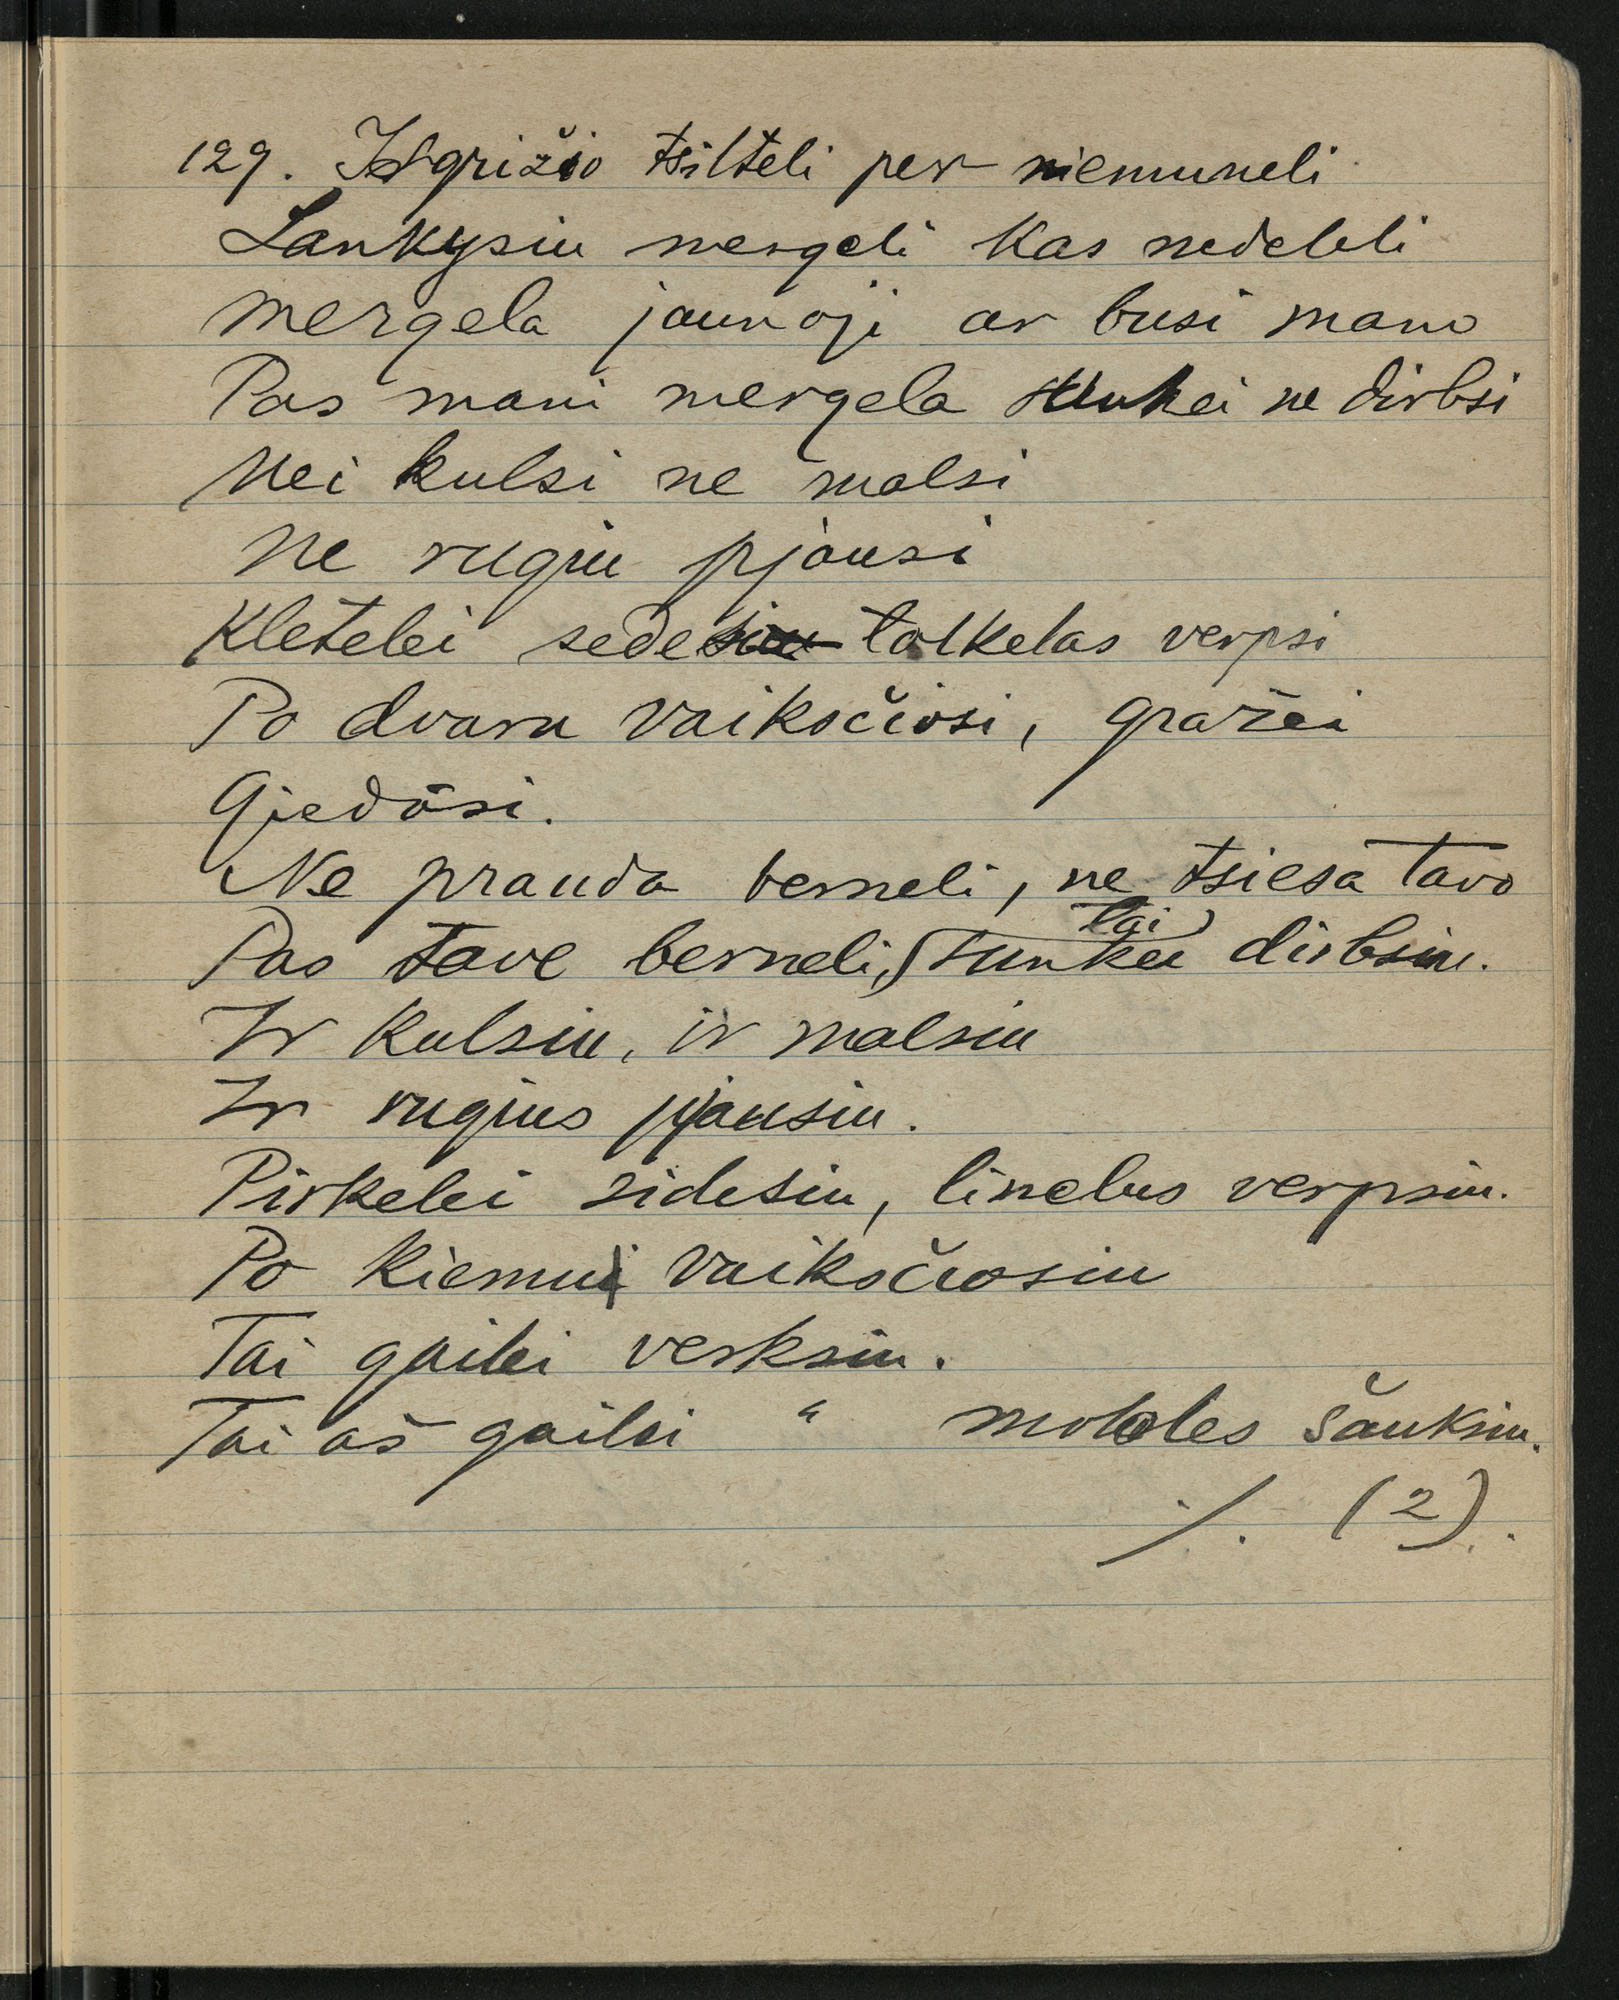 129. Išgrižio tsilteli per niemuneli
Lankysiu mergeli Kas nedeleli
mergela jaunoji ar busi mano
Pas mani mergela sunkei ne dirbsi
Nei kulsi ne malsi
Ne rugiu pjausi
Kletelei sede talkelas verpsi
Po dvaru vaiksčiosi, gražei
Giedosi.
Ne prauda berneli, ne tsiesa tavo
Pas tave berneli, sunkei tai dirbsiu.
Ir Kulsiu, ir malsiu
Ir rugius pjausiu.
Pirkelei sidesiu, linelus verpsiu.
Po Kiemui vaiksčiosiu
Tai gailei verksiu.
Tai aš gailei " motoles šauksiu.
·/. (2).